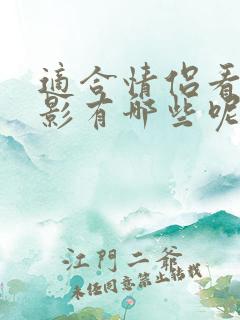 適合情侶看
影有哪些呢
江門二爺
未經同意禁止轉載